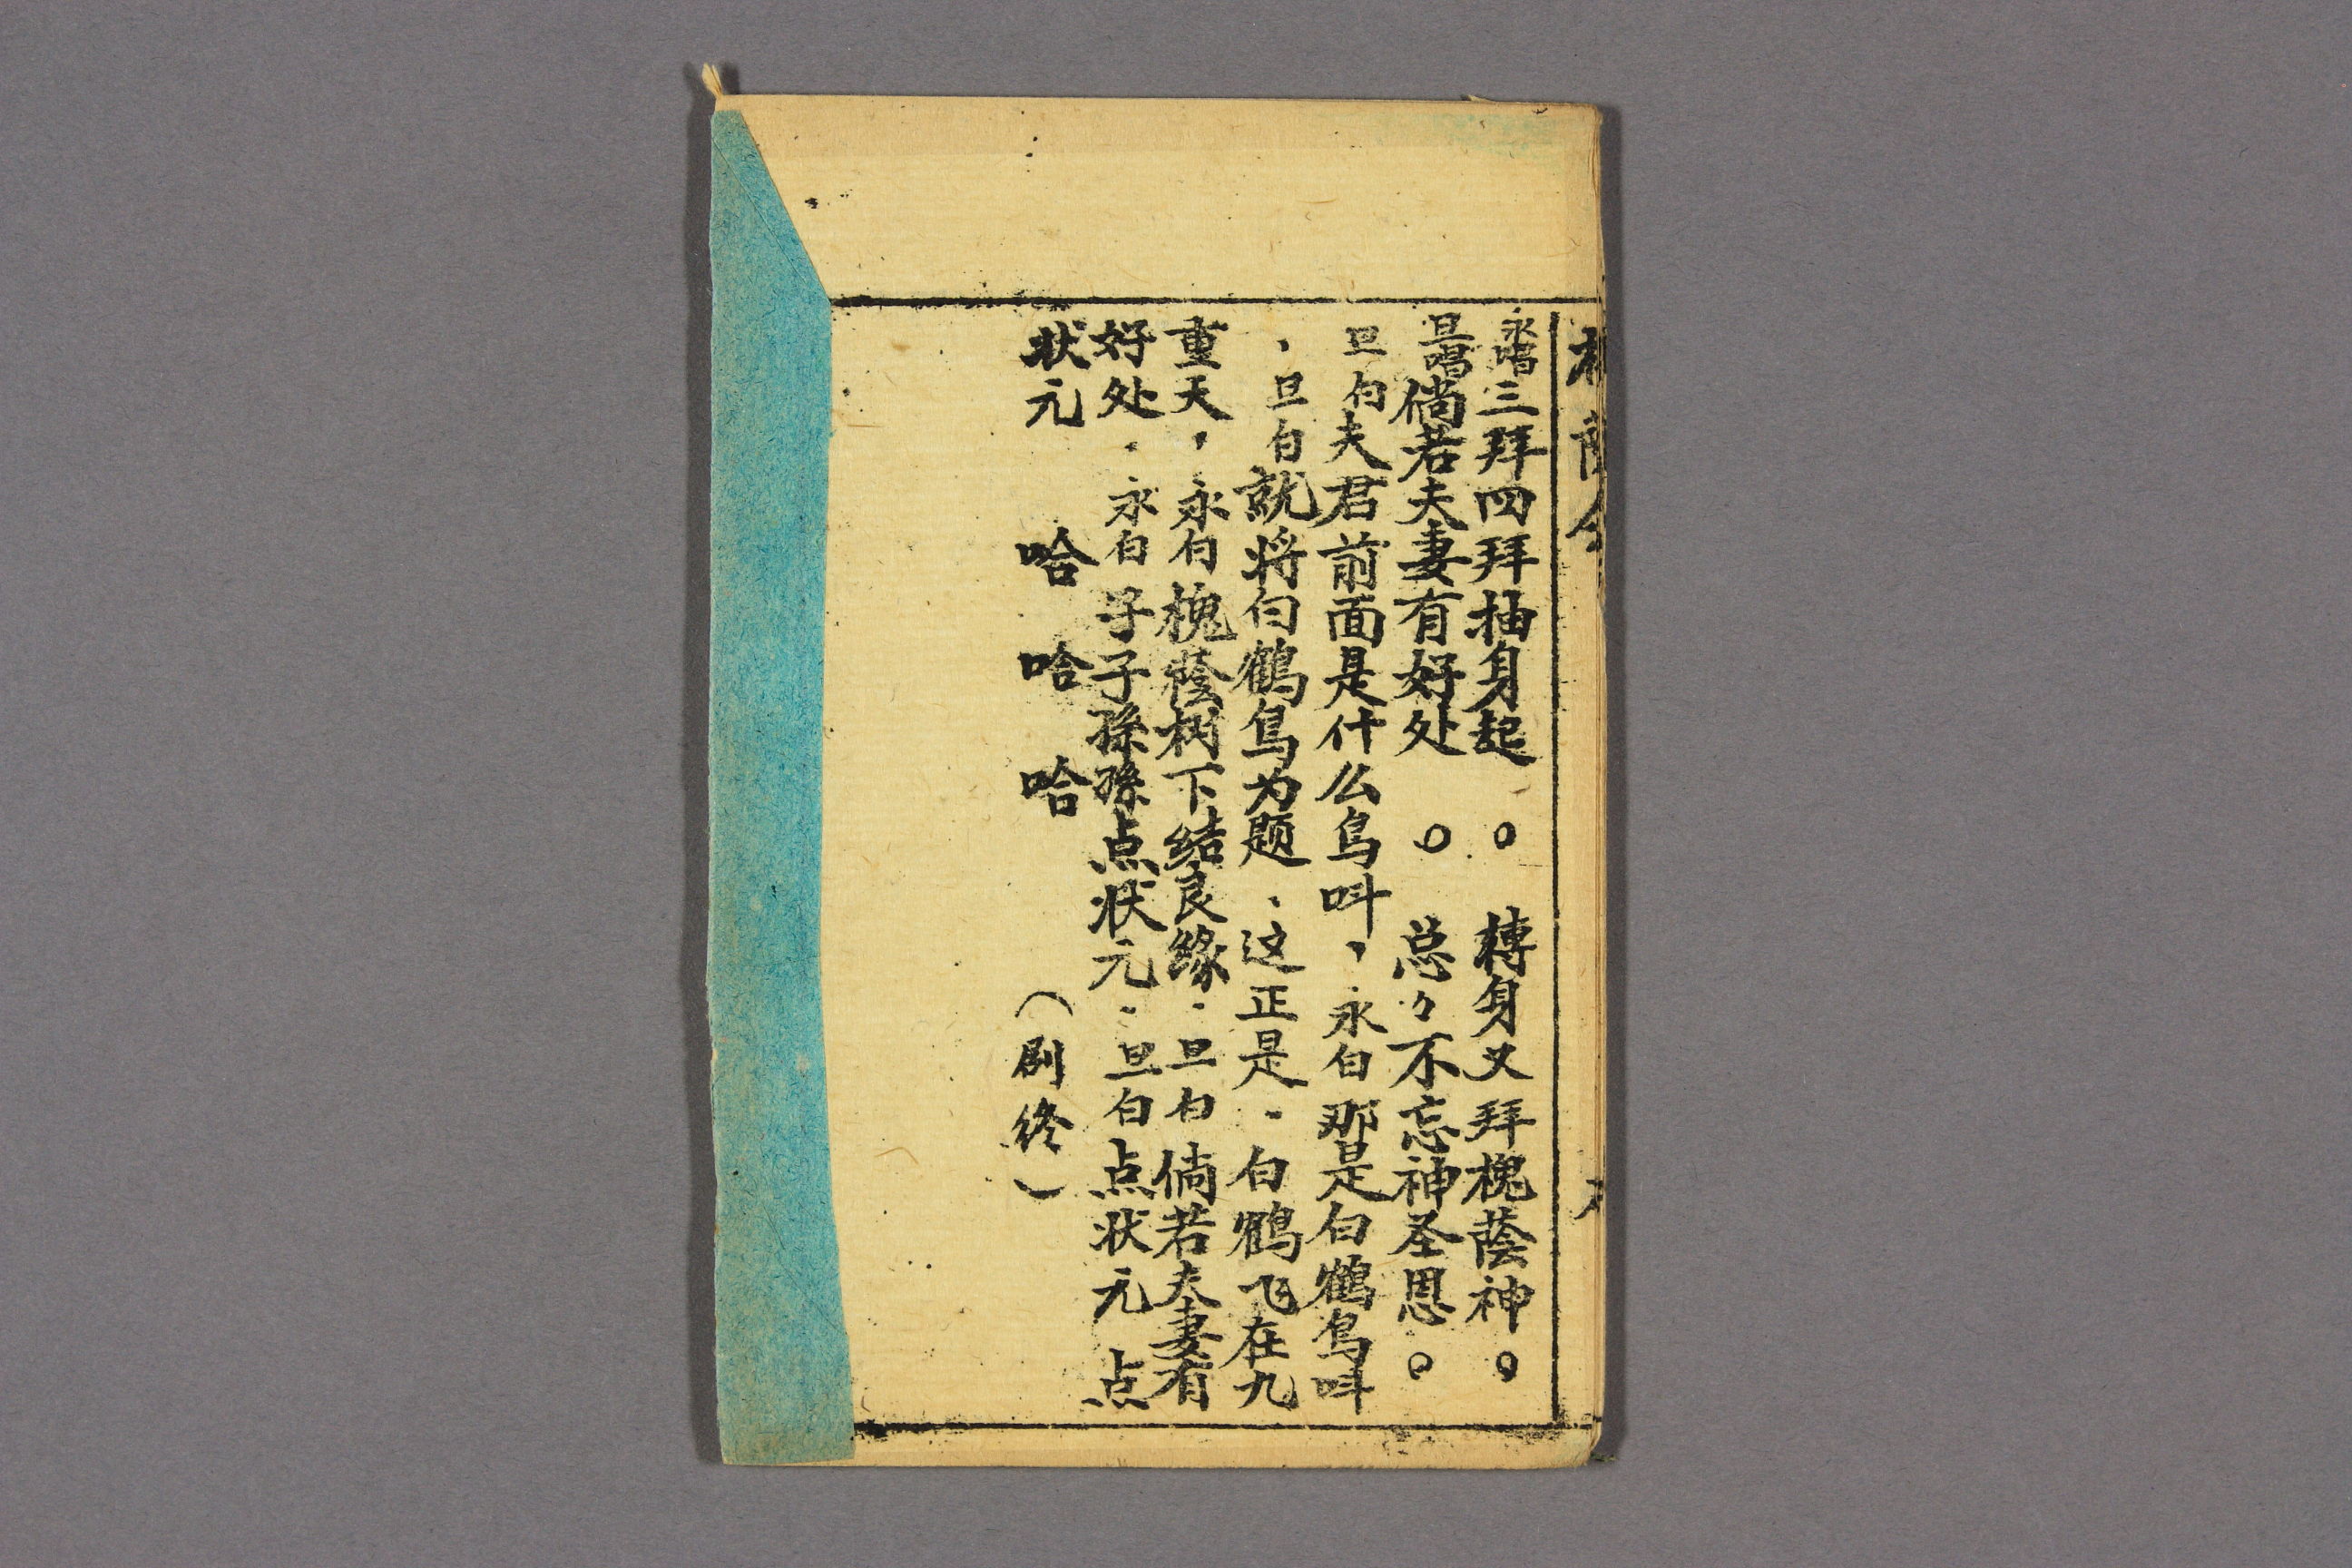 永唱三拜四拜抽身起。轉身又拜槐蔭神。
旦唱倘若夫妻有好处。总々不忘神圣恩。
旦白夫君前面是什么鸟呌，永白那是白鶴鸟呌
，旦白就将白鶴鸟为题．这正是．白鶴飞在九
重天，永白槐蔭树下结良缘．旦白倘若夫妻有
好处．永白子子孫孫点状元．旦白点状元点
状元 哈 哈 哈 （剧终）